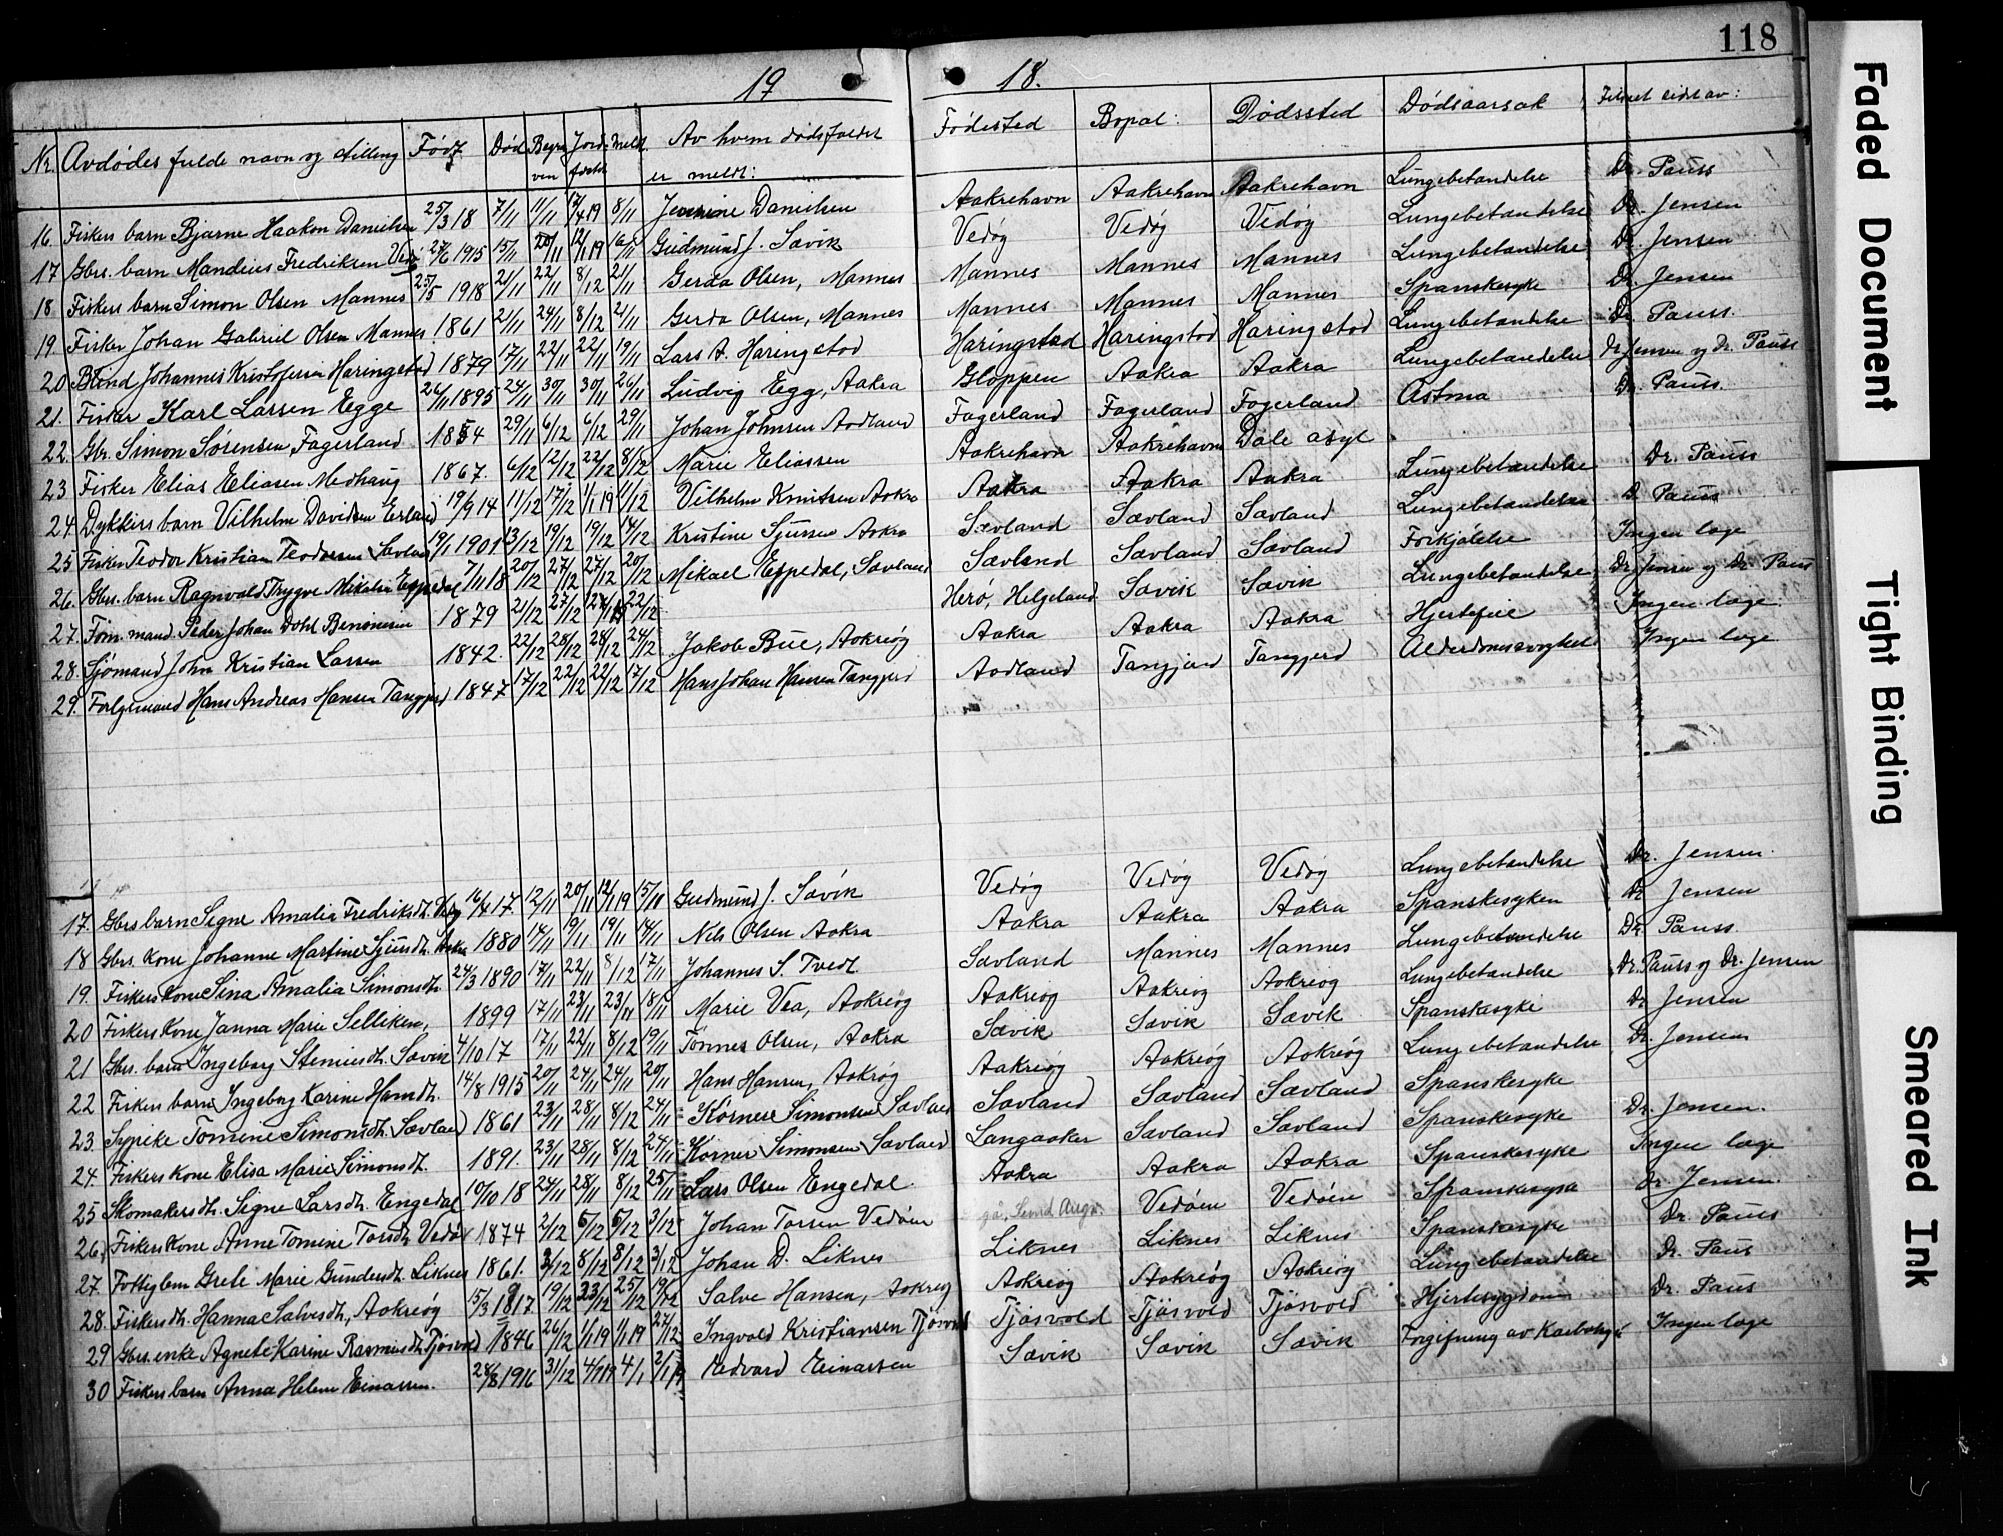 118
19 18.
Nr. Avdødes fulde navn og stilling Født Død Begra- ven Jord- fæstet Meldt Av hvem dødsfaldet er meldt: Fødested Bopæl: Dødssted Dødsaarsak Tilset sidst av:
16. Fiskers barn Bjarne Haakon Danielsen 25/3 18 7/11 11/11 4/19 8/11 Danielsen Aakrehavn Aakrehavn Aakrehavn Lungebetandelse Dr. Pauss
17 Gbrs. barn Mandius Fredriksen Vedø 27/6 1915 15/11 20/11 12/1 19 16/11 Gudmund J. Sævik Vedøy Vedøy Vedøy Lungebetandelse Dr. Jensen
18. Fiskers barn Simon Olsen Mannes 25/5 1918 21/11 22/11 8/12 21/11 Gerda Olsen, Mannes Mannes Mannes Mannes Lungebetandelse Dr. Jensen
19. Fisker Johan Gabriel Olsen Mannes 1861 21/11 24/11 8/12 21/11 Gerda Olsen, Mannes Mannes Mannes Mannes Spanskesyke Dr. Jensen
20 Blind Johannes Kristofersen Haringstad 1879 17/11 22/11 22/11 19/11 Lars A. Haringstad Haringstad Haringstad Haringstad Lungebetandelse Dr. Pauss.
21. Fisker Karl Larsen Egge 26/11 1895 24/11 30/11 30/11 26/11 Ludvig Egg, Aakra Gloppen Aakra Aakra Lungebetandelse Dr Jensen og Dr. Pauss
22. Gbr. Simon Sørensen Fagerland 1854 29/11 6/12 6/12 29/11 Johan Johnsen Aodland Fagerland Fagerland Fagerland Astma Dr. Pauss.
23 Fisker Elias Eliasen Medhaug 1867. 6/12 12/12 22/12 8/12 Marie Eliassen Aakrehavn Aakrehavn Dale asyl
24. Dykkers barn Vilhelm Davidsen Erland 19/9 14 11/12 17/12 1/1 19 11/12 Vilhelm Knutsen Aakra Aakra Aakra Aakra Lungebetandelse Dr. Pauss
25 Fisker Teodor Kristian Teodorsen Sævland 19/1 1901 13/12 19/12 19/12 14/12 Kristine Sjursen Aakra Sævland Sævland Sævland Lungebetandelse D. Pauss
26. Gbrs. barn Ragnvald Trygve Mikalsen Espedal 7/11 18 20/12 27/12 27/12 20/12 Mikael Espedal, Sævland Sævland Sævland Sævland Forkjølelse Ingen læge
27. Tøm. mand Peder Johan Dohl Benonisen 1879 21/12 27/12 27/12 22/12 Herø, Helgeland Sævik Sævik Lungebetandelse Dr. Jensen og Dr. Pauss
28. Sjømand John Kristian Larsen 1842. 22/12 28/12 28/12 24/12 Jakob Bue, Aakreøy Aakra Aakra Aakra Hjertefeil Ingen læge
29. Forlgsmand Hans Andreas Hansen Tangjerd 1847 17/12 22/12 22/12 17/12 Hans Johan Hansen Tangjerd Aodland Tangjerd Tangjerd Alderdomssvaghet Ingen læge
17. Gbrs barn Signe Amalia Fredriksdt. Vedøy 16/4 17 12/11 20/11 12/1 19 15/11 Gudmund J. Sævik Vedøy Vedøy Vedøy Lungebetandelse Dr. Jensen.
18 Gbrs. kone Johanne Martine Sjursdt. Aakra 1880 14/11 19/11 19/11 14/11 Nils Olsen Aakra Aakra Aakra Aakra Spanskesyken Dr Jensen
19. Fiskers kone Sina Amalia Simonsdt. 24/3 1890 17/11 22/11 8/12 17/11 Johannes S. Tvedt Sævland Mannes Mannes Lungebetandelse Dr. Pauss
20 Fiskers Kone Janna Marie Selliken, 1899 17/11 23/11 23/11 18/11 Marie Vea, Aakreøy Aakreøy Aakreøy Aakreøy Lungebetandelse Dr. Pauss og Dr. Jensen
21 Gbrs. barn Ingeborg Stemundt. Sævik 4/10 17 17/11 22/11 8/12 19/11 Tønnes Olsen, Aakra Sævik Sævik Sævik Spanskesyke Dr Jensen
22 Fiskers barn Ingeborg Karine Hansdt. 14/8 1915 20/11 24/11 24/11 20/11 Hans Hansen, Aakrøy Aakreøy Aakreøy Aakreøy Lungebetandelse Dr. Jensen
23. Sypike Tomine Simonsdt. Sævland 1861 23/11 28/11 8/12 24/11 Kørner Simonsen Sævland Sævland Sævland Sævland Spanskesyke
24. Fiskers kone Elisa Marie Simonsdt. 1891. 23/11 28/11 8/12 24/11 Kørner Simonsen Sævland Langaaker Sævland Sævland Spanskesyke Dr. Jensen.
25 Skomakersdt. Signe Larsdt. Engedal 10/10 18 24/11 28/11 8/12 25/11 Lars Olsen Engedal Aakra Aakra Aakra Spanskesyke Ingen læge
26, Fiskers Kone Anne Tomine Torsdt. Vedøy 1874 2/12 6/12 6/12 3/12 Johan Torsen Vedøen Vedøen Vedøen Spanskesyke Dr. Jensen.
27. Fattiglem Grete Marie Gundersdt. Liknes 1861. 3/12 8/12 8/12 3/12 Johan D. Liknes Liknes Liknes Liknes Spanskesyke Dr. Pauss
28. Fiskersdt. Hanna Salvesdt, Aakreøy 15/3 1917 19/12 23/12 25/12 19/12 Salve Hansen, Aakreøy Aakreøy Aakreøy Aakreøy Lungebetandelse Dr. Paus
29 Gbrs. enke Agnete Karine Rasmusdt. Tjøsvold 1846 26/12 1/1 19 1/1 19 27/12 Ingvald Kristiansen Tjøsvold Tjøsvold Tjøsvold Tjøsvold Hjertesygdom Dr. Paus
30 Fiskers barn Anna Helene Einarsen. 28/8 1916 31/12 4/1 19 4/1 2/1 19 Edvard Einarsen Sævik Sævik Sævik Forgiftning av Karbolsyre Ingen læge
Faded Document
Tight Binding
Smeared Ink